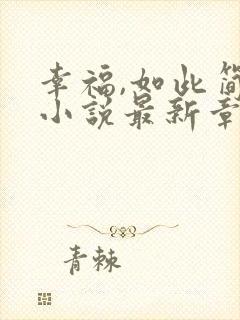 幸福,如此简
小说最新章
青棘